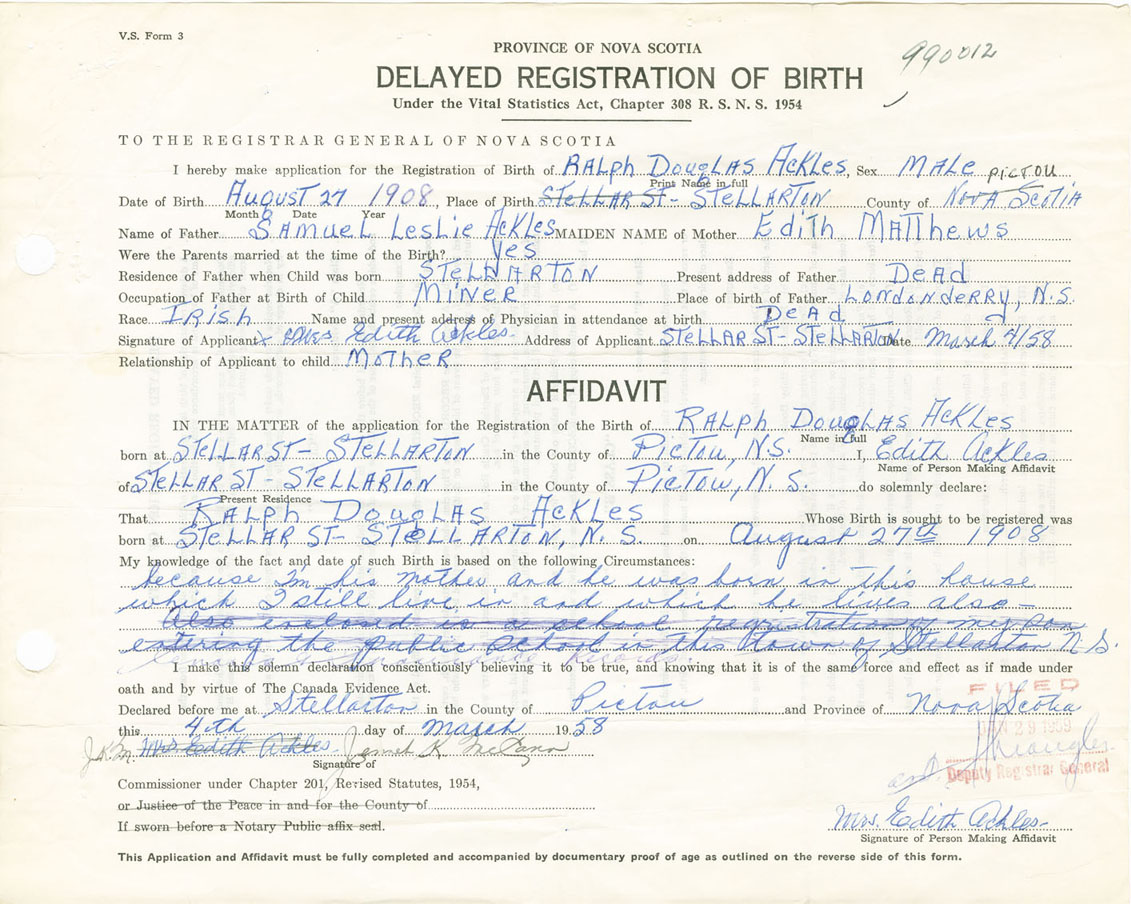 V.S. Form 3
990012
PROVINCE OF NOVA SCOTIA
DELAYED REGISTRATION OF BIRTH
Under the Vital Statistics Act, Chapter 308 R. S. N. S. 1954
TO THE REGISTRAR GENERAL OF NOVA SCOTIA
I hereby make application for the Registration of Birth of RALPH DOUGLAS ACKLES, Sex MALE
Print Name in full
PICTOU
Date of Birth AUGUST 27 1908, Place of Birth STELLAR ST- STELLARTON County of NOVA SCOTIA
Month Date Year
Name of Father SAMUEL LESLIE ACKLES MAIDEN NAME of Mother EDITH MATTHEWS
Were the Parents married at the time of the Birth? yes
Residence of Father when Child was born STELLARTON Present address of Father DEAD
Occupation of Father at Birth of Child MINER Place of birth of Father LONDONDERRY, N.S.
Race IRISH Name and present address of Physician in attendance at birth DEAD
Signature of Applicant x Edith Ackles Address of Applicant STELLAR ST- STELLARTON Date March 4/58
Relationship of Applicant to child MOTHER
AFFIDAVIT
IN THE MATTER of the application for the Registration of the Birth of RALPH DOUGLAS ACKLES
Name in full
born at STELLAR ST- STELLARTON in the County of PICTOU, N.S. I, Edith Ackles
Name of Person Making Affidavit
of STELLAR ST- STELLARTON in the County of PICTOU, N.S. do solemnly declare:
Present Residence
That RALPH DOUGLAS ACKLES Whose Birth is sought to be registered was
born at STELLAR ST- STELLARTON, N.S. on August 27th 1908
My knowledge of the fact and date of such Birth is based on the following Circumstances:
because I'm his mother and he was born in this house
which I still live in and which he lives also-
Also enclosed is a school registration of my son
entering the public school in this town of Stellarton N.S.
I make this solemn declaration conscientiously believing it to be true, and knowing that it is of the same force and effect as if made under
oath and by virtue of The Canada Evidence Act.
FILED
Declared before me at Stellarton in the County of Pictou and Province of Nova Scotia
this 4th day of March 1958
J.K.M. Mrs Edith Ackles
Signature of
Deputy Registrar General
Commissioner under Chapter 201, Revised Statutes, 1954,
or Justice of the Peace in and for the County of
If sworn before a Notary Public affix seal.
Mrs. Edith Ackles
Signature of Person Making Affidavit
This Application and Affidavit must be fully completed and accompanied by documentary proof of age as outlined on the reverse side of this form.